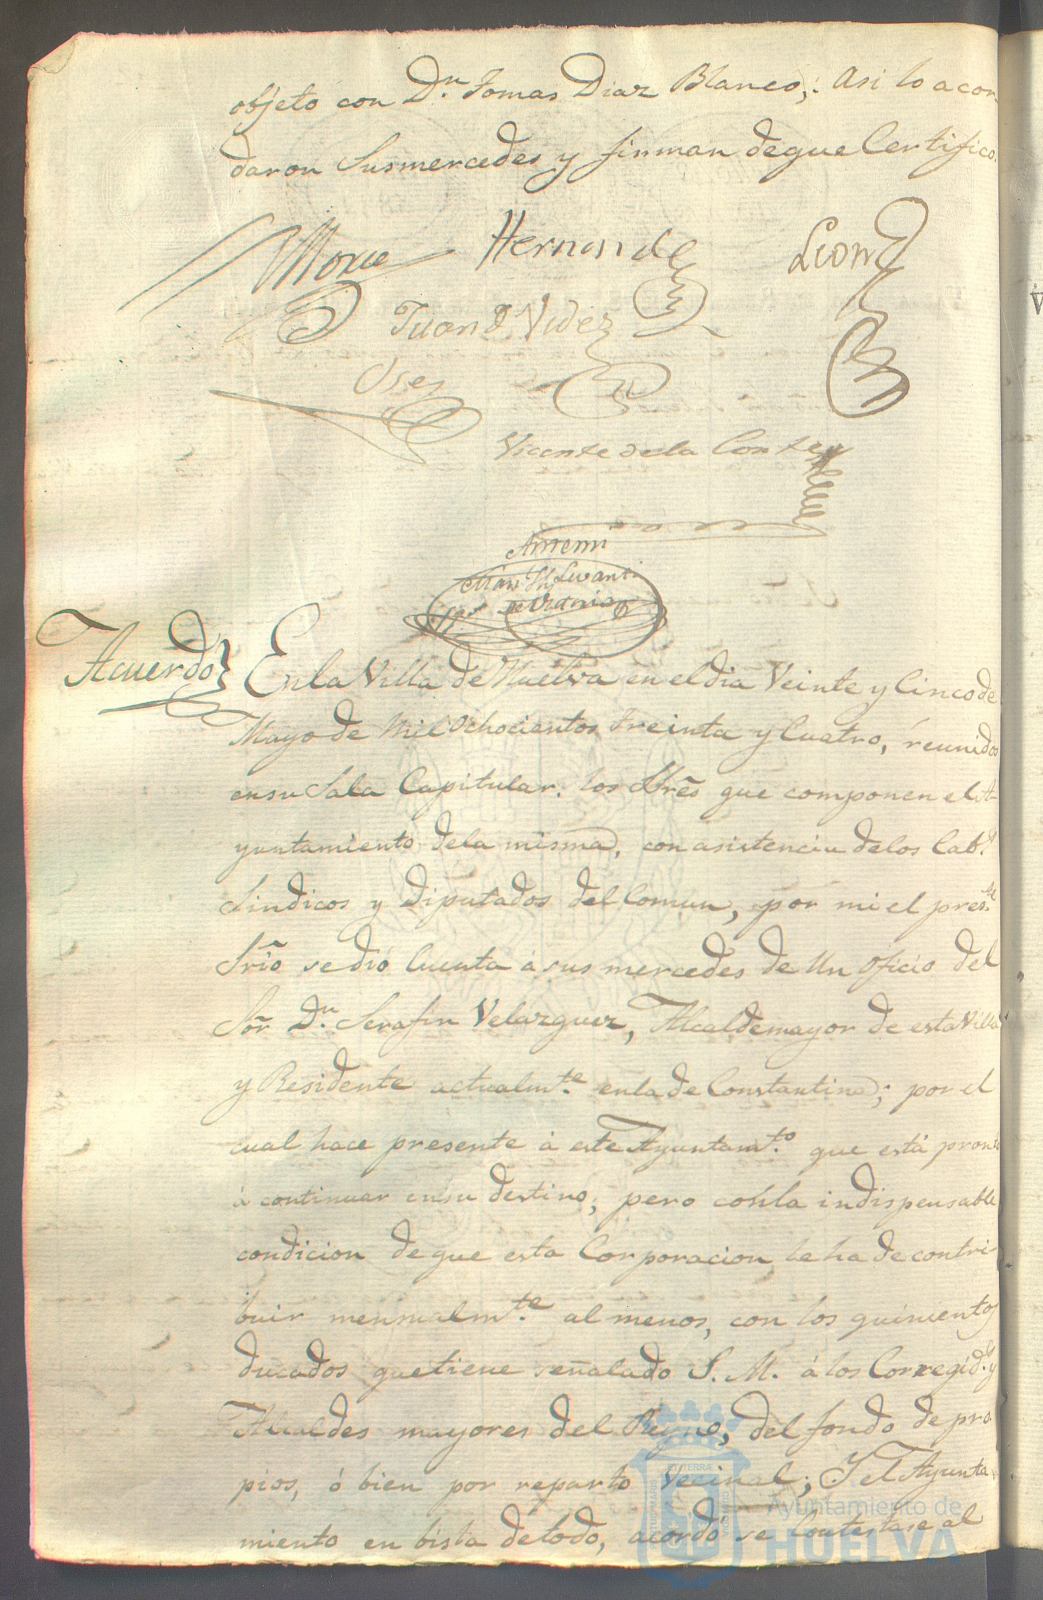 objeto con Dn. Tomas Diaz Blanco; Asi lo acor
daron Susmercedes y firman deque Certifico.
Hernandez
Leon
Juan D. Videz
Vicente de la Corte
Antemi
Acuerdo
En la Villa de Huelva en el dia Veinte y Cinco de
Mayo de Mil Ochocientos Treinta y Cuatro, reunidos
en su Sala Capitular. los Sres que componen el A
yuntamiento dela misma, con asistencia delos Cabs.
Sindicos y Diputados del Comun, por mi el preste.
Srio se dió Cuenta á sus mercedes de Un Oficio del
Sor. Dn. Serafin Velazquez, Alcaldemayor de esta Villa
y Residente actualmte. enla de Constantina; por el
cual hace presente á este Ayuntamto. que está pronto
á continuar en su destino, pero con la indispensable
condicion de que esta Corporacion le ha de contri
buir mensualmte. al menos, con los quinientos
ducados que tiene señalado S. M. á los Corregids. y
Alcaldes mayores del Reyno, del fondo de pro
pios, ó bien por reparto Vecinal; Y el Ayunta
miento en bista detodo, acordó se Contestase al
Ayuntamiento de
HUELVA